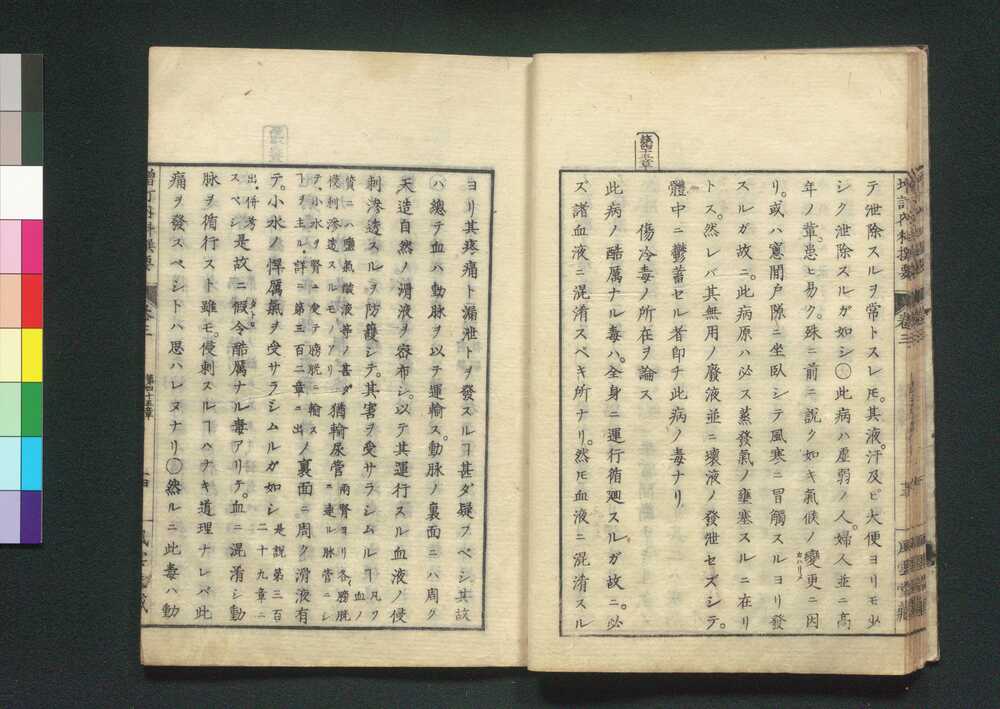 第四十五章
テ泄除スルヲ常トスレ𪜈。其液。汗及ビ大便ヨリモ少
シク泄除スルガ如シ○此病ハ虚弱ノ人。婦人並ニ高
年ノ輩。患ヒ易ク。殊ニ前ニ説ク如キ氣候ノ變更ニ因
カハリメ
リ。或ハ窓間戸隙ニ坐臥シテ風寒ニ冒觸スルヨリ發
スルガ故ニ。此病原ハ必ス蒸發氣ノ壅塞スルニ在リ
トス。然レバ其無用ノ廢液並ニ壞液ノ發泄セズシテ。
體中ニ鬱蓄セル者即チ此病ノ毒ナリ
傷冷毒ノ所在ヲ論ス
此病ノ酷厲ナル毒ハ。全身ニ運行循𢌞スルガ故ニ。必
ズ諸血液ニ混淆スベキ所ナリ。然𪜈血液ニ混淆スル
ヨリ其疼痛ト漏泄トヲ發スルヿ甚ダ疑フベシ其故
ハ總テ血ハ動脉ヲ以テ運輸ス。動脉ノ裏面ニハ周ク
天造自然ノ滑液ヲ密布シ。以テ其運行スル血液ノ侵
刺滲透スルヲ防護シテ。其害ヲ受サラシムルヿ凡ク血ノ
質ニハ鹽氣酸液等ノ甚ダ
侵刺滲透スルモノアリ
猶輸尿管兩腎ヨリ各膀胱
ニ連ル脉管ニシ
テ。小水ヲ腎ニ受テ膀胱ニ輸ス
ヿヲ主ル詳ニ第三百二章ニ出
ノ裏面ニ周ク滑液有
テ。小水ノ悍厲氣ヲ受サラシムルガ如シ是説第三百
二十九章ニ
出。併考
スベシ
是故ニ假令酷厲ナル毒アリテ。血ニ混淆シ動
タトヒ
脉ヲ循行スト雖モ。侵刺スルヿハナキ道理ナレバ此
痛ヲ發スベシトハ思ハレヌナリ○然ルニ此毒ハ動
卷三
第四十五章